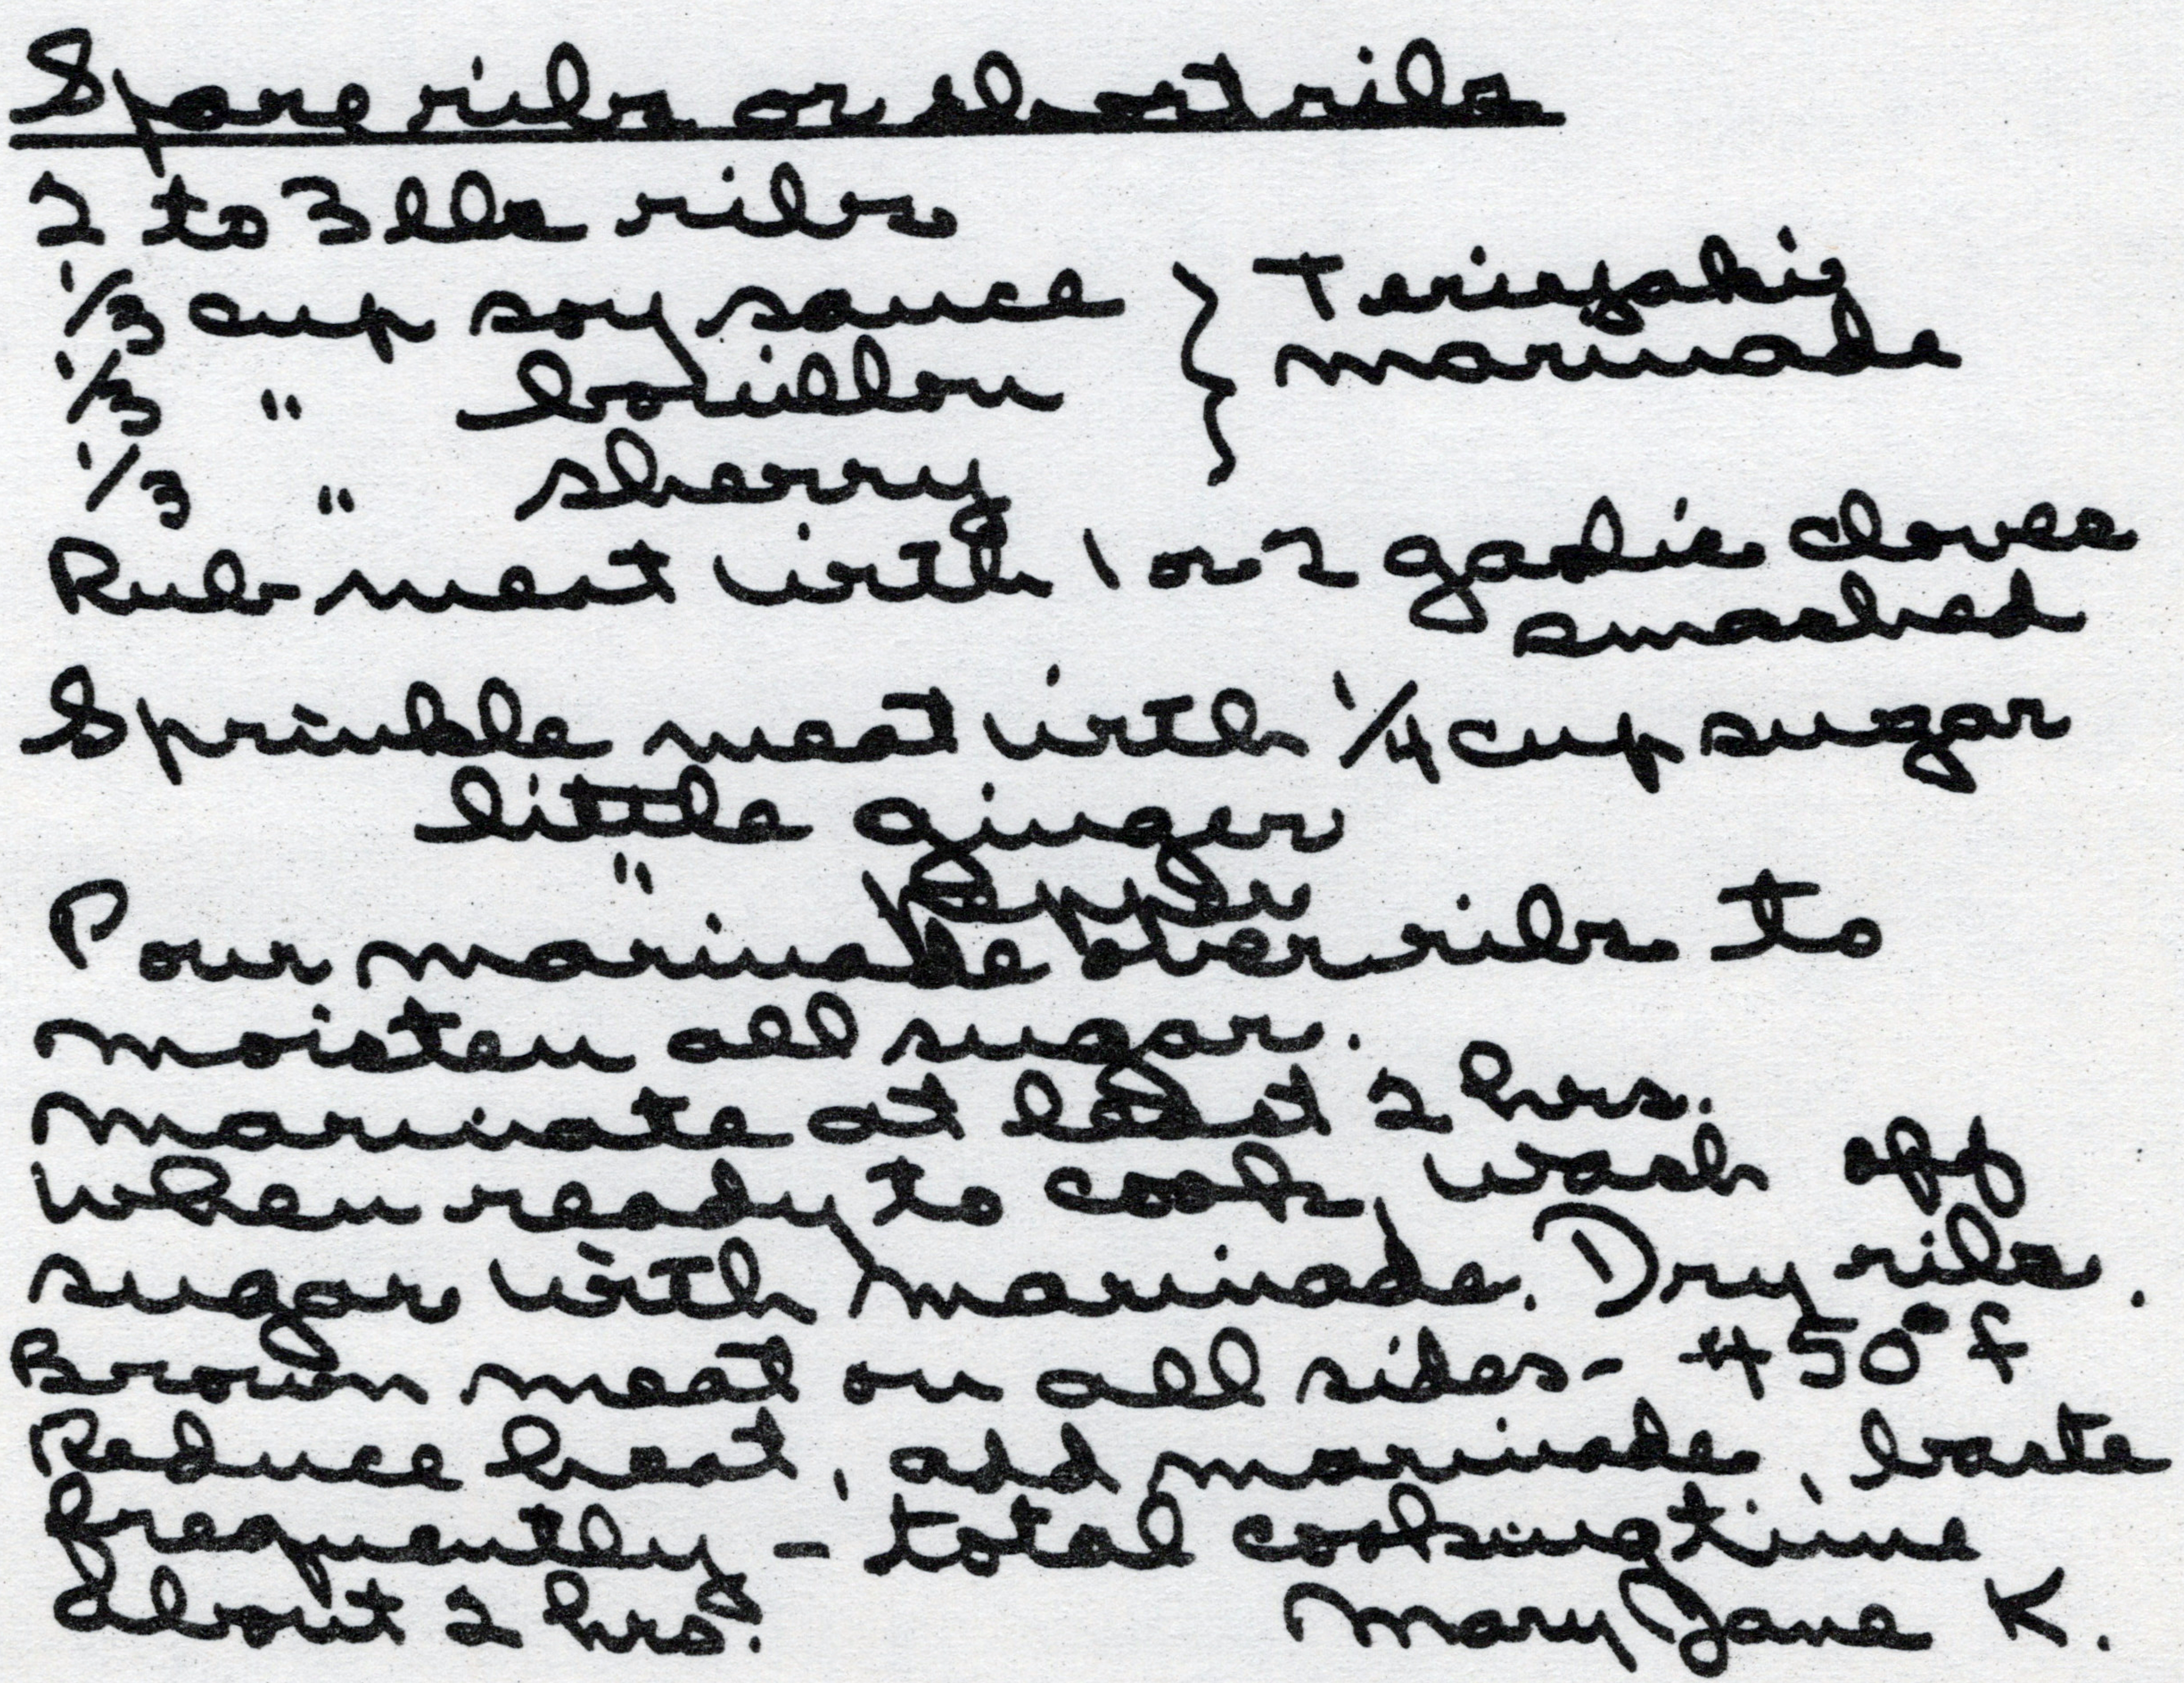 Spare ribs or short ribs
2 to 3 lbs ribs
1/3 cup soy sauce } Teriyaki
1/3 " bouillon marinade
1/3 " sherry
Rub meat with 1 or 2 garlic cloves
smashed
Sprinkle meat with 1/4 cup sugar
little ginger
" pepper
Pour marinade over ribs to
moisten all sugar.
Marinate at least 2 hrs.
When ready to cook, wash off
sugar with marinade. Dry ribs.
Brown meat on all sides - 450° f
Reduce heat, add marinade, baste
frequently - total cooking time
about 2 hrs.
Mary Jane K.